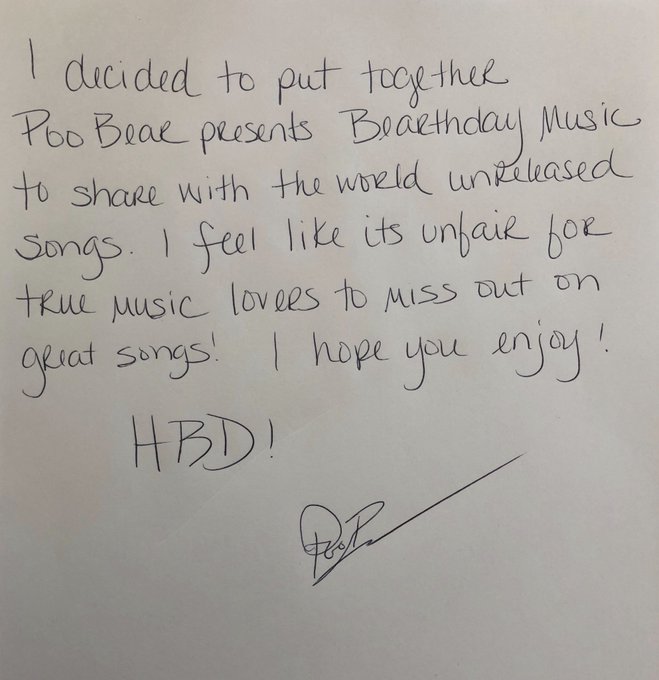 I decided to put together
Poo Bear presents Bearthday Music
to share with the world unreleased
songs. I feel like its unfair for
true music lovers to miss out on
great songs! I hope you enjoy!
HBD!